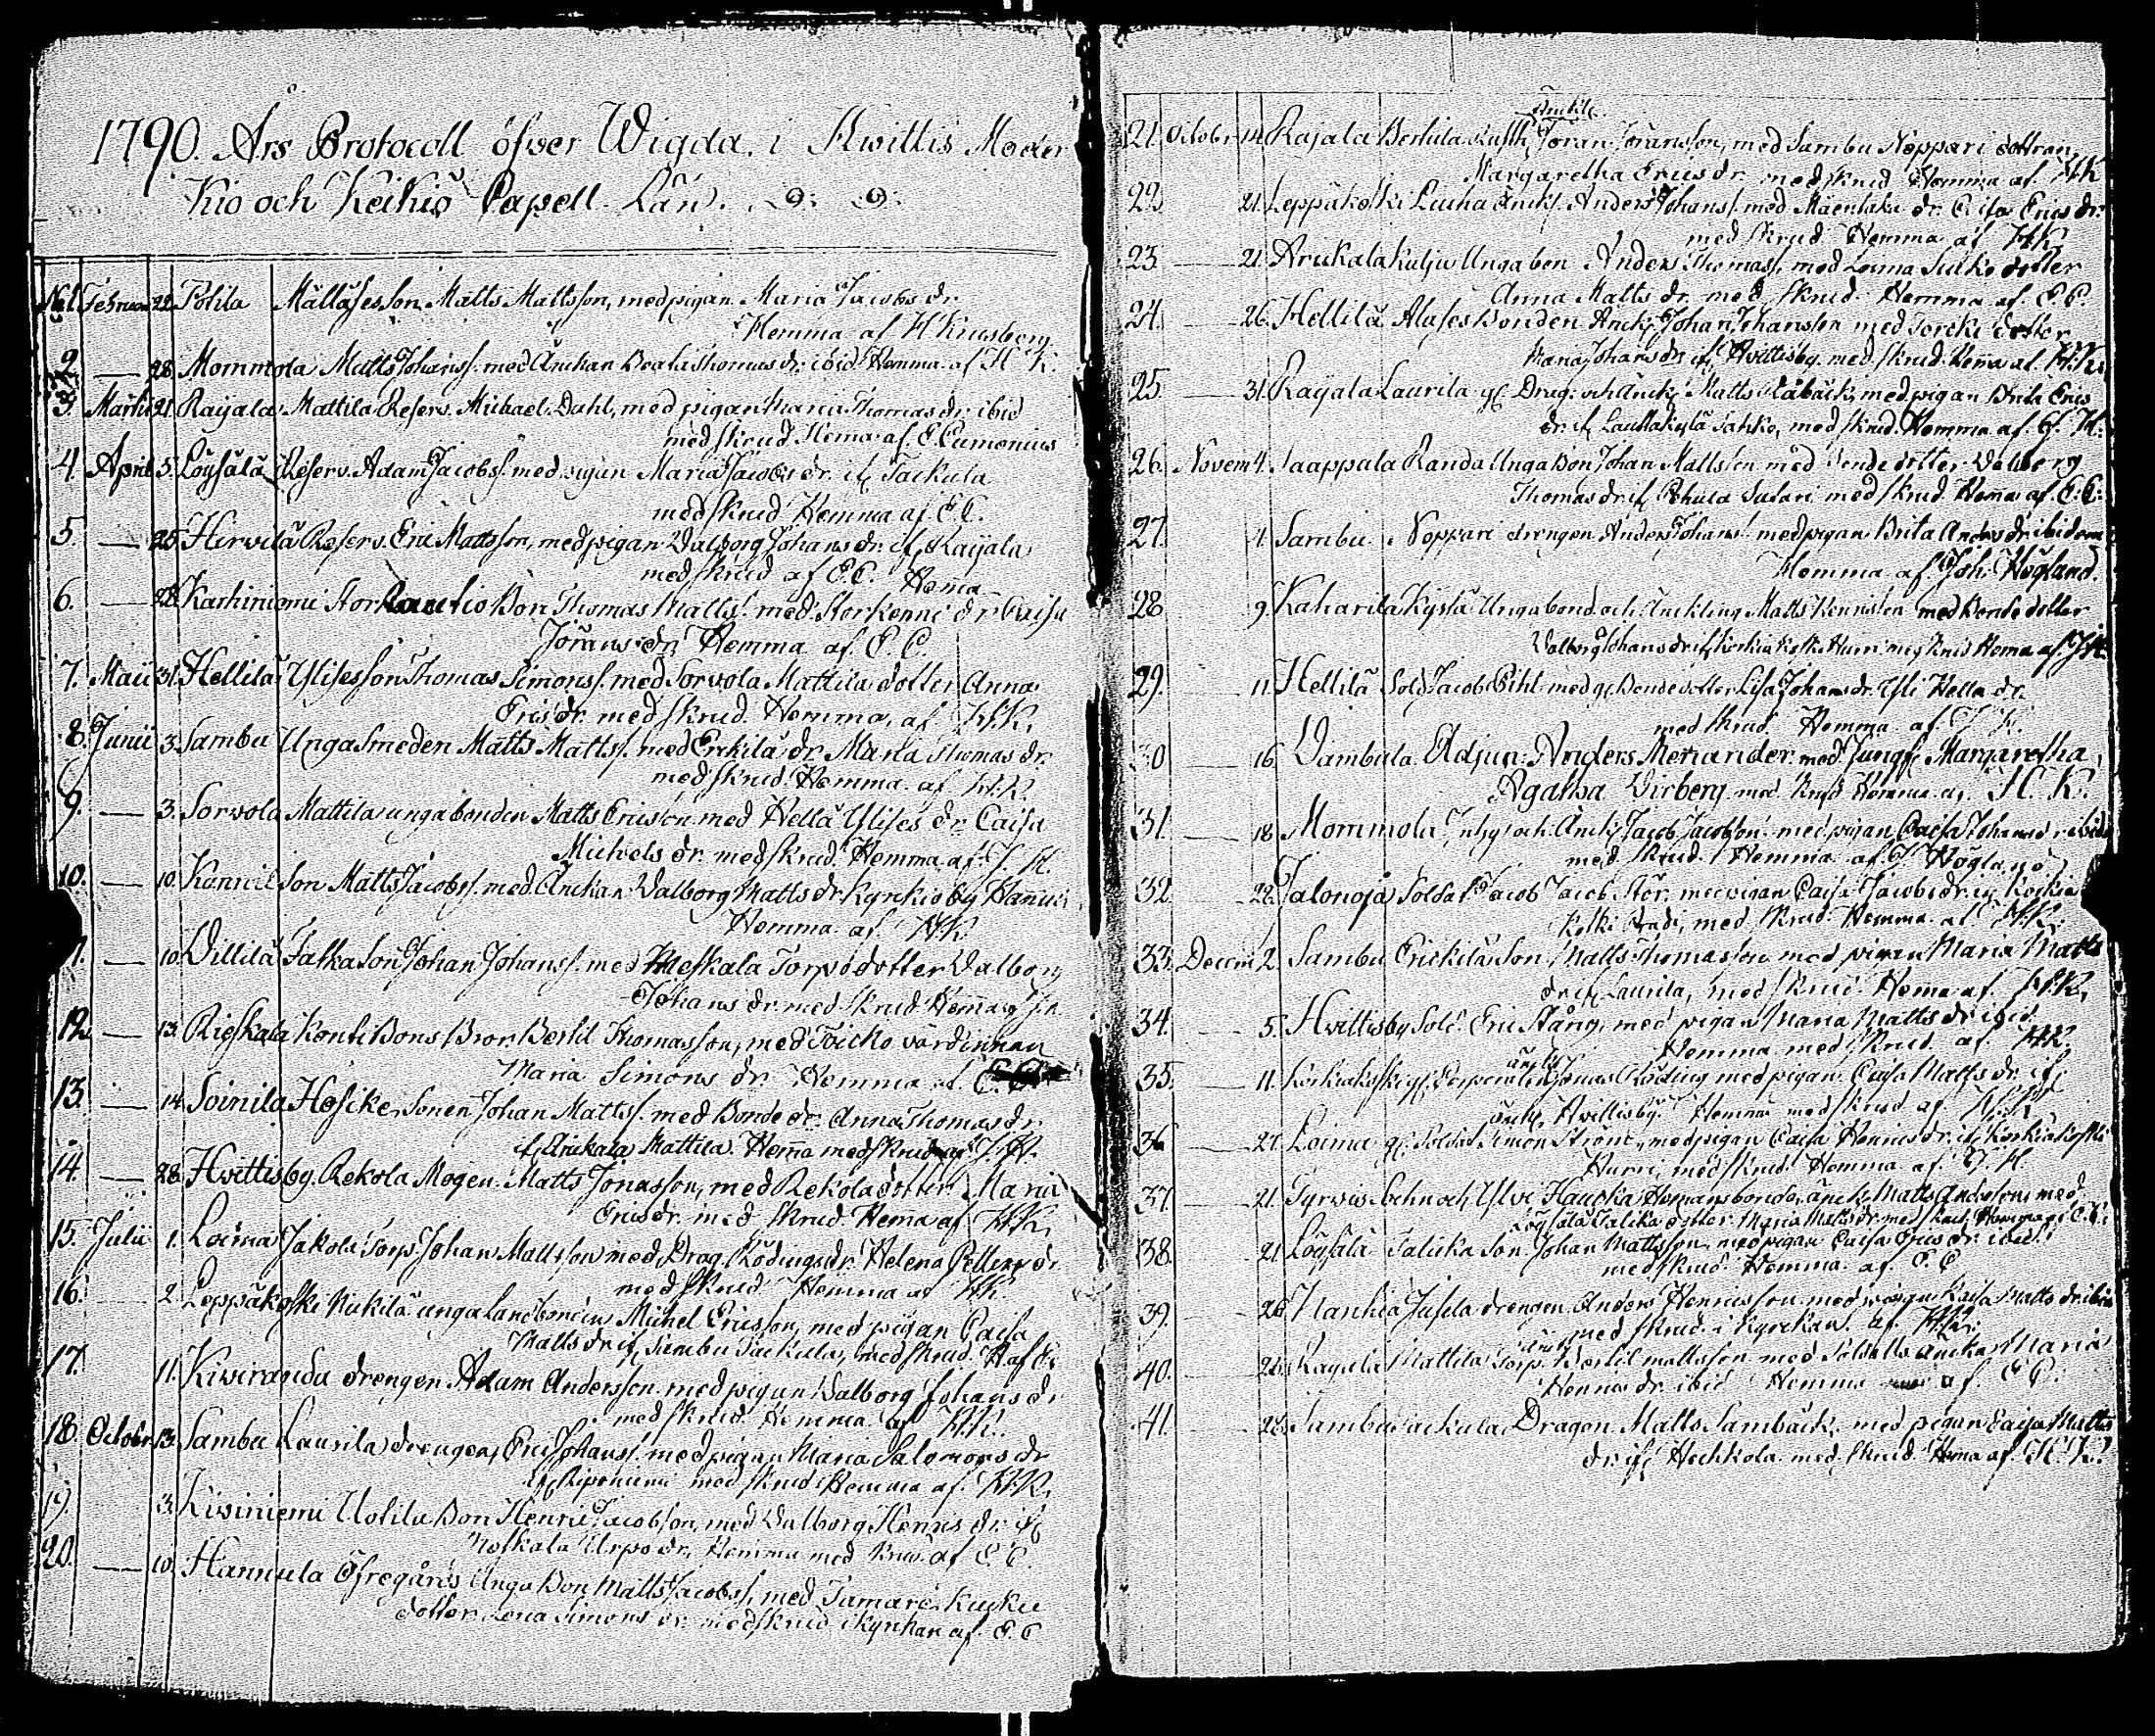 1790. Års Protocoll öfver Wigda. i Hwittis Moder
Kio och Keikiö Capell Lån.
No 1. Februar 22. Potila Mällä Sesson Matts Mattsson, med pigan Maria Jacobs dr.
Hemma af H Krusberg
2. — 28. Mommola Matts Johanss. med Änckan Beata Thomas dr. ibid. Hemma af H K.
3. Martii 21. Raijala Mattila Reserv. Michael Dahl, med pigan Maria Thomas dr. ibid
med skrud Hema af. E. Cumenius
4. April 5. Löysälä Reserv. Adam Jacobss. med pigan Maria Jacobs dr. if Tackula
med skrud Hemma af E. C.
5. — 25. Hirvilä Reserv. Eric Mattsson, med pigan Walborg Johans dr. if Raijala
med skrud af E. C. Hema
6. — 28. Karhiniemi Stor Rautio Bon Thomas Matts. med Storkenni dr. Caisa
Jörans dr. Hemma af E. C.
7. Maii 31. Hellilä Ylisesson Thomas Simons. med Sorvola Mattila dotter Anna
Erics dr. med skrud. Hemma, af H. K.
8. Junii 3. Sambu Unga Smeden Matts Matts. med Erckilä dr. Maria Thomas dr.
med skrud. Hemma af H. K.
9. — 3. Sorvola Mattila unga bonden Matts Ericsson med Hella Ylises dr. Caisa
Michels dr. med skrud. Hemma af J. H.
10. — 10. Son Matts Jacobss. med Änckan Walborg Matts dr. Kyrkioby
Hemma af H. K.
11. — 10. Villilä Son Johan Johanss. med Meskala Torpsdotter Valborg
Johans dr. med skrud Hema af J. H.
12. — 13. Rieskala Bons Bror Bertil Thomasson, med Toicko värdinnan
Maria Simons dr. Hemma af E. C.
13. — 14. Soinila Sonen Johan Matts. med Bonde dr. Anna Thomas dr.
if Anckala Mattila. Hema med skrud af J. H.
14. — 28. Hvittisby Rekola Mågen Matts Jonasson, med Rekola dotter Maria
Erics dr. med skrud. Hema af H. K.
15. Julii 1. Loima Jakola Torp. Johan Mattsson med Drag. Rödings dr. Helena Petters dr.
med skrud. Hemma af H. K.
16. — 2. Leppäkoski unga Landbonden Michel Ericsson, med pigan Caisa
Matts dr. if Sambu Tackula, med skrud. H af E.
17. 11. Kiviranda drengen Adam Andersson med pigan Valborg Johans dr.
med skrud. Hemma af H. K.
18. October 13. Sambu Laurila drengen, Eric Johanss. med pigan Maria Salomons dr.
if Ripeniemi med skrud. Hemma af H. K.
19. 3. Kiviniemi Uotila Bon Henric Jacobsson, med Valborg Henrics dr. if
Urpo dr. Hemma med skrud. af E. C.
20. — 10. Hannula Öfregårds Unga Bon Matts Jacobss. med Tamare
dotter Lena Simons dr. med skrud i Kyrkan af E. C.
21. October 14. Rajala Bertula Jöran Jöransson, med Sambu Noppari dottren,
Margaretha Erics dr. med skrud. Hemma af H. K
22. 21. Leppäkoski Anders Johanss. med dr. Caisa Erics dr.
med skrud. Hemma af H. K.
23. — 21. Arukala Unga bon Anders Thomass. med Loima dotter
Anna Matts dr. med skrud. Hemma af. E. C.
24. — 26. Hellilä Alases Bonden Anckl. Johan Johansson med dotter
Maria Johans dr. if Hvittisby med skrud. Hema af H. K.
25. — 31. Raijala Laurila gl. Drag. och Änckl. Matts med pigan Brita Erics
dr. if Lauttakylä med skrud. Hemma af. J. H.
26. Novem 4. Jaappala Randa Unga Bon Johan Mattsson med Bonde dotter Walborg
Thomas dr. if med skrud. Hema af. E. C.
27. 4. Sambu Noppari drengen Anders Johans. med pigan Brita Anders dr. ibidem
Hemma af Joh: Höglund.
28. 9. Kaharila Unga bond. och Änckling Matts Henrisson med Bonde dotter
Valborg Johans dr. if Korkiakoski Hurri med skrud Hema af J. H.
29. — 11. Hellilä Sold. Jacob Pihl med gl. Bonde dotter Lisa Johans dr. Yli Hella dr.
med skrud. Hemma af
30 — 16. Vambula Adjun: Anders Menander med Jungfr. Margaretha
Agatha Virberg med skrud Hemma af H. K.
31. — 18. Mommola, Inhys. och Änckl. Jacob Jacobsson med pigan Caisa Johans dr. ibid
med skrud. Hemma af J. Höglund
32. — 22. Jalonoja Soldat Jacob Jacob med pigan Caisa Jacobs dr. if Korkia
koski med skrud. Hemma af H. K.
33. Decem 2. Sambu Erickilä Son Matts Thomasson med pigan Maria Matts
dr. if Laurila, med skrud Hema af H. K.
34. — 5. Hvittisby Sold. Eric Stång, med pigan Maria Matts dr. ibid.
Hemma med skrud af H. K.
35. — 11. Korkiakoski gl. Corporalen Jonas Röding med pigan Caisa Matts dr. if
Hvittisby. Hemma med skrud af H. K.
36 — 21. Loima gl. Soldat Simon Ström, med pigan Caisa Henrics dr. if Korkiakoski
Hurri, med skrud. Hemma af J. H.
37. — 21. Tyrvis Sockn och Haucka Hemans bonde, änckl. Matts Andersson med
Löysälä Talicka dotter Maria Matts dr. med skrud, Hemma af E. C.
38. — 21. Löysälä Talicka Son Johan Mattsson, med pigan Caisa Erics dr. ibid.
med skrud. Hemma af. E. C
39. — 26. Hanhia Jusela drengen Anders Henricsson med pigan Kaisa Matts dr. ibid
med skrud. i Kyrckan af H. K.
40. — 26. Rayala Mattila Torp. Bertil Mattsson med Soldatts änckan Maria
Henrics dr. ibid Hemma af. E C.
41. — 28. Sambu Tackula, Dragon Matts Sambäck, med pigan Caisa Matts
dr. if Hechkola med skrud. Hema af. H. K.